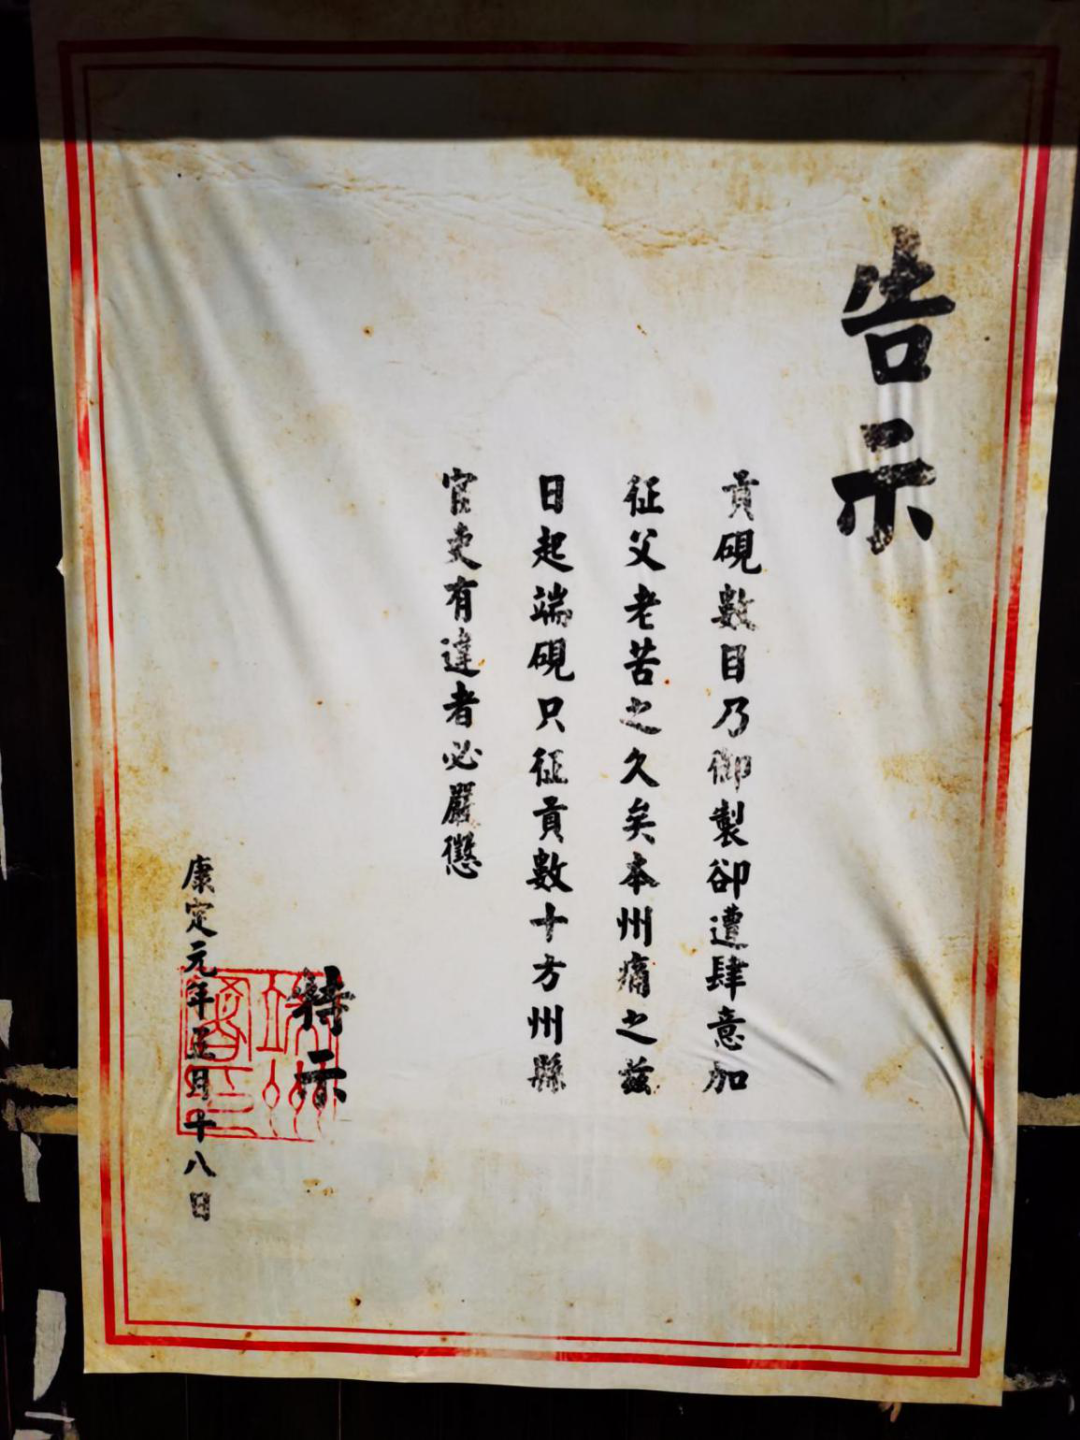 告示
貢硯數目乃御製卻遭肆意加
征父老苦之久矣本州痛之茲
日起端硯只征貢數十方州縣
官吏有違者必嚴懲
特示
康定元年正月十八日